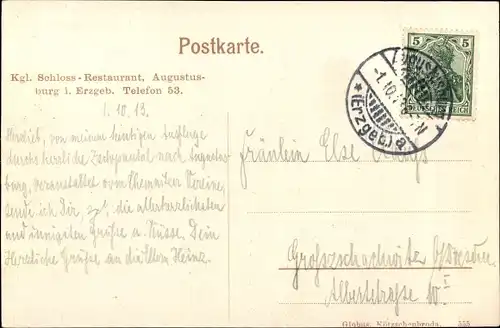 Postkarte.
Kgl. Schloss-Restaurant, Augustus-
burg i. Erzgeb. Telefon 53.
1.10.13.
Herzlich, von meinem heutigen Ausfluge
durch das herrliche Zschopautal nach Augustus-
burg, veranstaltet vom Chemnitzer Vereine,
sende ich Dir, die allerherzlichsten
und innigsten Grüße u. Küsse. Dein
Herzliche Grüße an die Eltern Heinz.
5 5
DEUTSCHES REICH
AUGUSTUSBURG
-1.10.
*(Erzgeb.)a.
Fräulein Else
Großzschachwitz b/Dresden
Albertstraße 10 I
Globus, Kötzschenbroda. 555